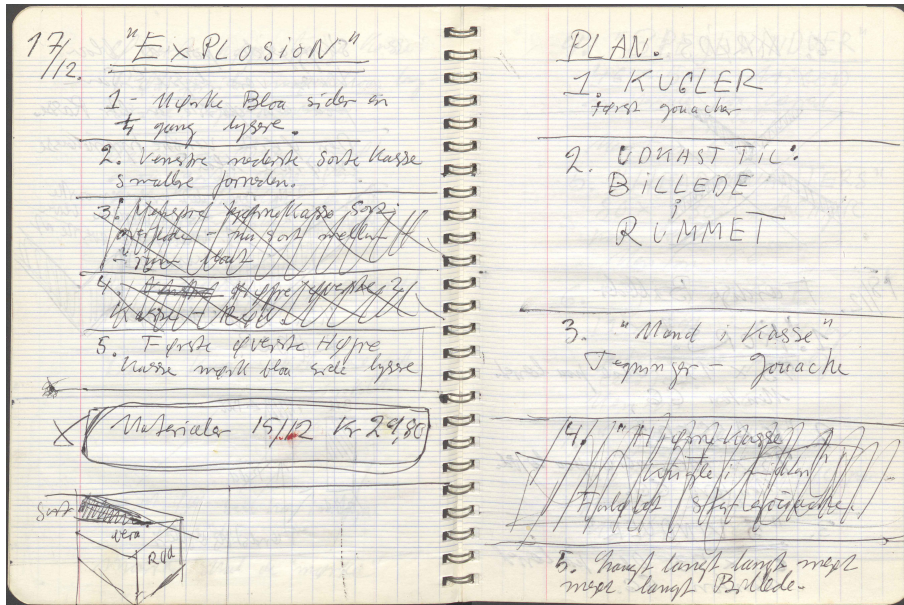 17/12.
"EXPLOSION"
1 - Mørke Blaa sider en
gang lysere.
2. Venstre nederste sorte Kasse
smallere forneden.
3.
4.
Kasse
5. Første øverste Højre
Kasse mørk blaa side lysere
X
Materialer 15/12 Kr 29,80
Sort
Rød
PLAN.
1. KUGLER
først gouacher
2. UDKAST TIL:
BILLEDE
i
RUMMET
3. "Mand i Kasse"
Tegninger - Gouache
4. "Hjørne Kasse
5. langt langt langt meget
meget langt Billede -